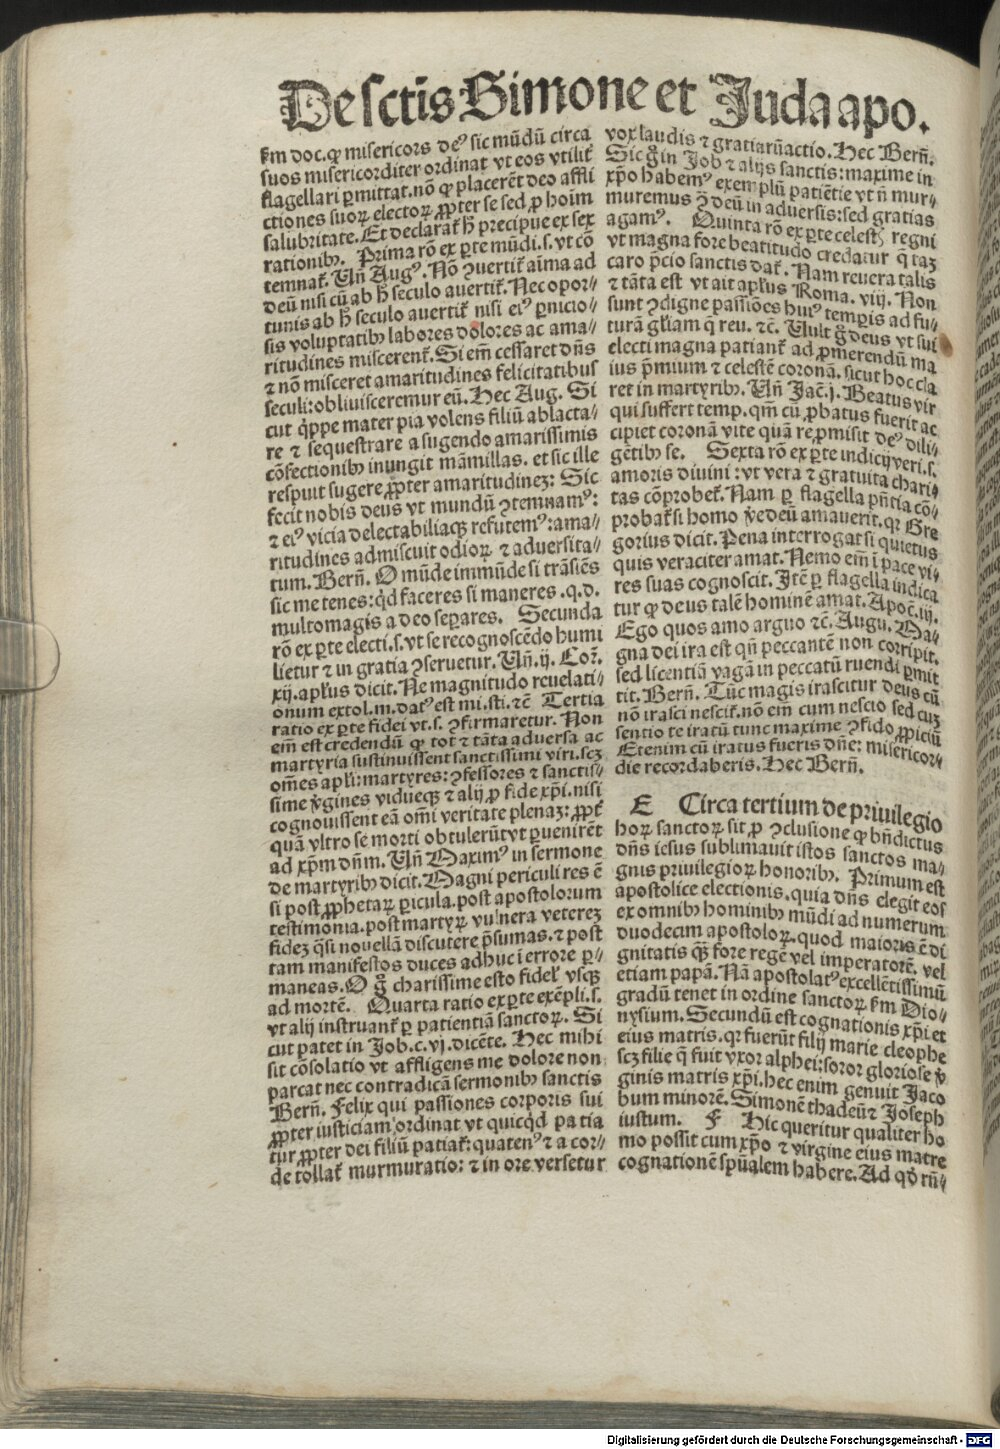 De sctīs Simone et Juda apo.
ẜm doc. ꝙ misericors deꝰ sic mūdū circa
suos misericorditer ordinat vt eos vtilit᷑
flagellari ꝑmittat. nō ꝙ placerēt deo affli
ctiones suoꝝ electoꝝ ꝓpter se sed ꝓ hoīm
salubritate. Et declarat᷑ ħ precipue ex sex
rationibꝫ. Prima rō ex ꝑte mūdi. s. vt cō
temnat᷑. Vn̄ Augꝰ. Nō ꝯuertit᷑ aīma ad
deū nisi cū ab ħ seculo auertit᷑. Nec opor⸗
tunis ab ħ seculo auertit᷑ nisi eiꝰ ꝑnicio⸗
sis voluptatibꝫ labores dolores ac ama⸗
ritudines miscerent᷑. Si em̄ cessaret dn̄s
⁊ nō misceret amaritudines felicitatibus
seculi: obliuisceremur eū. Hec Aug. Si
cut q̇ppe mater pia volens filiū ablacta⸗
re ⁊ sequestrare a sugendo amarissimis
cōfectionibꝫ inungit māmillas. et sic ille
respuit sugere ꝓpter amaritudineꝫ: Sic
fecit nobis deus vt mundū ꝯtemnamꝰ:
⁊ eiꝰ vicia delectabiliaqꝫ refutemꝰ: ama⸗
ritudines admiscuit odioꝝ ⁊ aduersita⸗
tum. Bern̄. O mūde immūde si trāsiēs
sic me tenes: qͥd faceres si maneres. q. d.
multomagis a deo seꝑares. Secunda
rō ex ꝑte electi. s. vt se recognoscēdo humi
lietur ⁊ in gratia ꝯseruetur. Vn̄. ij. Cor̄.
xij. aplꝰus dicit. Ne magnitudo reuelati⸗
onum extol. m. datꝰ est mi. sti. ⁊c̄ Tertia
ratio ex ꝑte fidei vt. s. ꝯfirmaretur. Non
em̄ est credendū ꝙ tot ⁊ tāta aduersa ac
martyria sustinuissent sanctissimi viri. scꝫ
om̄es apl̄i: martyres: ꝯfessores ⁊ sanctis⸗
sime ꝟgines vidueqꝫ ⁊ alij ꝓ fide xp̄i. nisi
cognouissent eā om̄i veritate plenaꝫ: ꝓpt᷑
quā vltro se morti obtulerūt vt ꝑuenirēt
ad xp̄m dn̄m. Vn̄ Maximꝰ in sermone
de martyribꝫ dicit. Magni periculi res ē
si post ꝓphetaꝝ ꝑicula. post apostolorum
testimonia. post martyꝝ vulnera vetereꝫ
fideꝫ q̄si nouellā discutere p̄sumas. ⁊ post
tam manifestos duces adhuc ī errore ꝑ⸗
maneas. O gͦ charissime esto fidel᷑ vsqꝫ
ad mortē. Quarta ratio ex ꝑte exēpli. s.
vt alij instruant᷑ ꝑ patientiā sanctoꝝ. Si
cut patet in Job. c. vj. dicēte. Hec mihi
sit cōsolatio vt affligens me dolore non
parcat nec contradicā sermonibꝫ sanctis
Bern̄. Felix qui passiones corporis sui
ꝓpter iusticiam ordinat vt quicqͥd patia
tur ꝓpter dei filiū patiat᷑: quatenꝰ ⁊ a cor⸗
de tollat᷑ murmuratio: ⁊ in ore versetur
vox laudis ⁊ gratiarū actio. Hec Bern̄.
Sic gͦ in Job ⁊ alijs sanctis: maxime in
xp̄o habemꝰ exemplū patiētie vt n̄ mur⸗
muremus ꝯ deū in aduersis: sed gratias
agamꝰ. Quinta rō ex ꝑte celestꝭ regni
vt magna fore beatitudo credatur q̄ taꝫ
caro p̄cio sanctis dat᷑. Nam reuera talis
⁊ tāta est vt ait apl̄us Roma. viij. Non
sunt ꝯdigne passiōes huiꝰ temꝑis ad fu⸗
turā gl̄iam q̄ reu. ⁊c̄. Vult gͦ deus vt sui
electi magna patiant᷑ ad ꝓmerendū ma
ius p̄mium ⁊ celestē coronā. sicut hoc cla
ret in martyribꝫ. Vn̄ Jac̄. j. Beatus vir
qui suffert temp. qm̄ cū ꝓbatus fuerit ac
cipiet coronā vite quā reꝓmisit deꝰ dili⸗
gētibꝫ se. Sexta rō ex ꝑte indicij veri. s.
amoris diuini: vt vera ⁊ gratuita chari⸗
tas cōprobet᷑. Nam ꝑ flagella pn̄tia cō⸗
probat᷑ si homo ꝟe deū amauerit. qr Gre
gorius dicit. Pena interrogat si quietus
quis veraciter amat. Nemo em̄ ī pace vi⸗
res suas cognoscit. Itē ꝑ flagella indica
tur ꝙ deus talē hominē amat. Apoc̄. iij.
Ego quos amo arguo ⁊c̄. Augu. Ma⸗
gna dei ira est qn̄ peccantē non corripit.
sed licentiā vagā in peccatū ruendi ꝑmit
tit. Bern̄. Tūc magis irascitur deus cū
nō irasci nescit᷑. nō em̄ cum nescio sed cuꝫ
sentio te iratū tunc maxime ꝯfido ꝓpiciū
Etenim cū iratus fueris dn̄e: misericor⸗
die recordaberis. Hec Bern̄.
E Circa tertium de priuilegio
hoꝝ sanctoꝝ sit ꝓ ꝯclusione ꝙ bn̄dictus
dn̄s iesus sublimauit istos sanctos ma⸗
gnis priuilegioꝝ honoribꝫ. Primum est
apostolice electionis. quia dn̄s elegit eos
ex omnibꝫ hominibꝫ mūdi ad numerum
duodecim apostoloꝝ. quod maioris ē di
gnitatis qꝫ̄ fore regē vel imperatorē. vel
etiam papā. Nā apostolatꝰ excellētissimū
gradū tenet in ordine sanctoꝝ ẜm Dio⸗
nysium. Secundū est cognationis xp̄i et
eius matris. qr fuerūt filij marie cleophe
scꝫ filie q̄ fuit vxor alphei: soror gloriose ꝟ
ginis matris xp̄i. hec enim genuit Jaco
bum minorē. Simonē thadeū ⁊ Joseph
iustum. F Hic queritur qualiter ho
mo possit cum xp̄o ⁊ virgine eius matre
cognationē sp̄ūalem habere. Ad qd̄ rn̄⸗
Digitalisierung gefördert durch die Deutsche Forschungsgemeinschaft - DFG